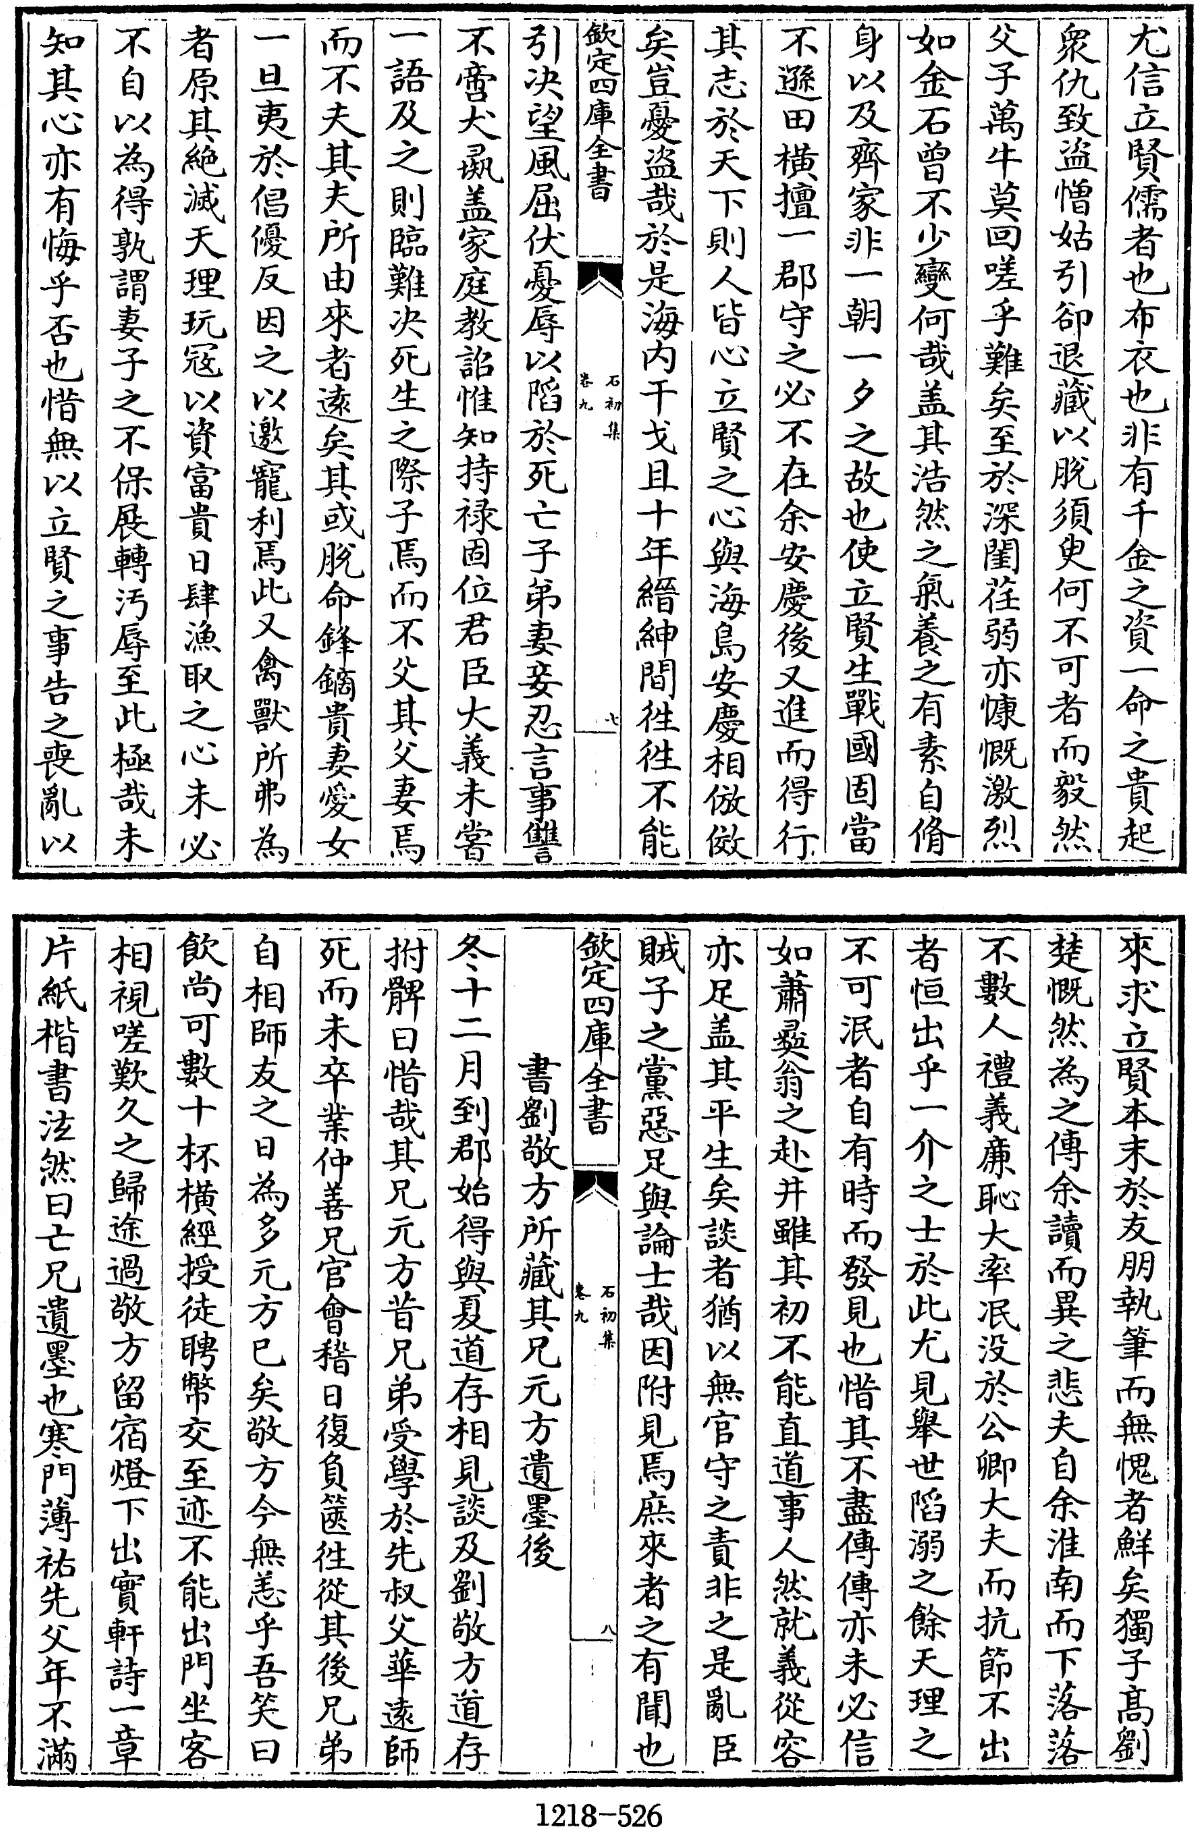 尤信立賢儒者也布衣也非有千金之資一命之貴起
衆仇致盜憎姑引卻退藏以脫須臾何不可者而毅然
父子萬牛莫回嗟乎難矣至於深閨荏弱亦慷慨激烈
如金石曾不少變何哉盖其浩然之氣養之有素自脩
身以及齊家非一朝一夕之故也使立賢生戰國固當
不遜田橫擅一郡守之必不在余安慶後又進而得行
其志於天下則人皆心立賢之心與海島安慶相倣傚
矣豈憂盜哉於是海内干戈且十年縉紳間徃徃不能
欽定四庫全書
石初集
卷九
七
引决望風屈伏憂辱以䧟於死亡子弟妻妾忍言事讐
不啻犬彘盖家庭教詔惟知持禄固位君臣大義未嘗
一語及之則臨難决死生之際子焉而不父其父妻焉
而不夫其夫所由來者遠矣其或脫命鋒鏑貴妻愛女
一旦夷於倡優反因之以邀寵利焉此又禽獸所弗為
者原其絶滅天理玩冦以資富貴日肆漁取之心未必
不自以為得孰謂妻子之不保展轉汚辱至此極哉未
知其心亦有悔乎否也惜無以立賢之事告之喪亂以
來求立賢本末於友朋執筆而無愧者鮮矣獨子髙劉
楚慨然為之傳余讀而異之悲夫自余淮南而下落落
不數人禮義廉恥大率冺没於公卿大夫而抗節不出
者恒出乎一介之士於此尤見舉世䧟溺之餘天理之
不可泯者自有時而發見也惜其不盡傳傳亦未必信
如蕭彛翁之赴井雖其初不能直道事人然就義從容
亦足盖其平生矣談者猶以無官守之責非之是亂臣
賊子之黨惡足與論士哉因附見焉庶來者之有聞也
欽定四庫全書
石初集
卷九
八
書劉敬方所藏其兄元方遺墨後
冬十二月到郡始得與夏道存相見談及劉敬方道存
拊髀曰惜哉其兄元方昔兄弟受學於先叔父華逺師
死而未卒業仲善兄官會稽日復負篋徃從其後兄弟
自相師友之日為多元方已矣敬方今無恙乎吾笑曰
飲尚可數十杯橫經授徒聘幣交至迹不能出門坐客
相視嗟歎久之歸途過敬方留宿燈下出實軒詩一章
片紙楷書泫然曰亡兄遺墨也寒門薄祐先父年不滿
1218-526